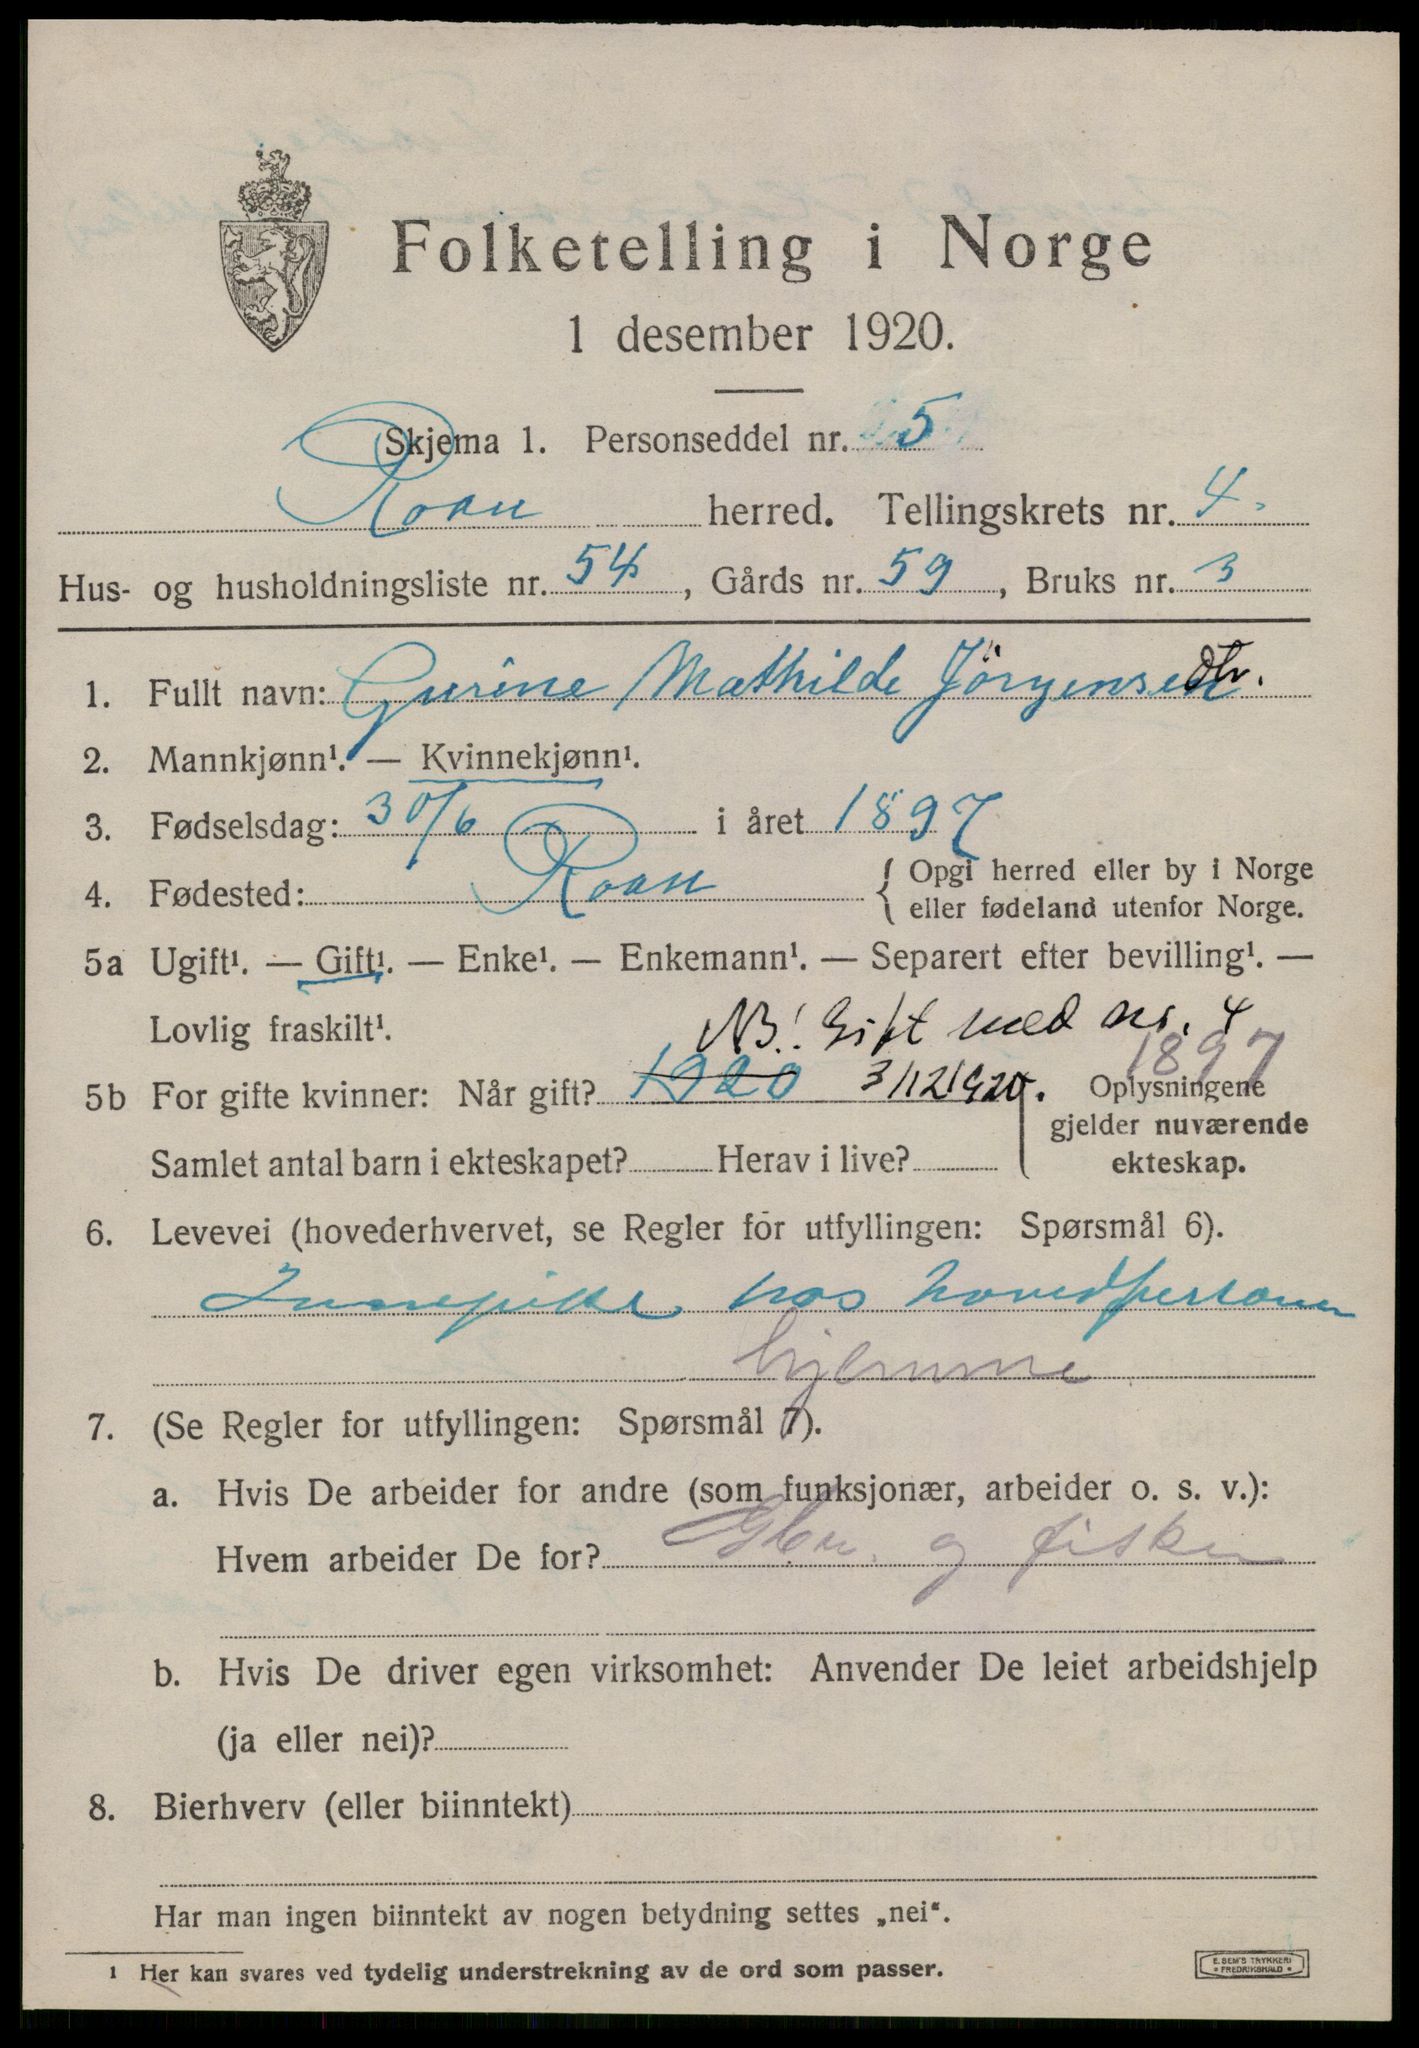 Folketelling i Norge
1 desember 1920.
Skjema 1. Personseddel nr. 5
Roan herred. Tellingskrets nr. 4.
Hus- og husholdningsliste nr. 54, Gårds nr. 59, Bruks nr. 3
1. Fullt navn: Gurine Mathilde Jörgensen dtr.
2. Mannkjønn¹. — Kvinnekjønn¹.
3. Fødselsdag: 30/6 i året 1897
4. Fødested: Roan { Opgi herred eller by i Norge
eller fødeland utenfor Norge.
5a Ugift¹. — Gift¹. — Enke¹. — Enkemann¹. — Separert efter bevilling¹. —
Lovlig fraskilt¹. NB! Gift med nr. 4
1897
5b For gifte kvinner: Når gift? 1920 3/12 1920. Oplysningene
gjelder nuværende
Samlet antal barn i ekteskapet? Herav i live? ekteskap.
6. Levevei (hovederhvervet, se Regler for utfyllingen: Spørsmål 6).
Innepike hos hovedpersonen
hjemme
7. (Se Regler for utfyllingen: Spørsmål 7).
a. Hvis De arbeider for andre (som funksjonær, arbeider o. s. v.):
Hvem arbeider De for? Gbr. og fisker
b. Hvis De driver egen virksomhet: Anvender De leiet arbeidshjelp
(ja eller nei)?
8. Bierhverv (eller biinntekt)
Har man ingen biinntekt av nogen betydning settes „nei“.
¹ Her kan svares ved tydelig understrekning av de ord som passer.
E. SEM'S TRYKKERI
• FREDRIKSHALD •